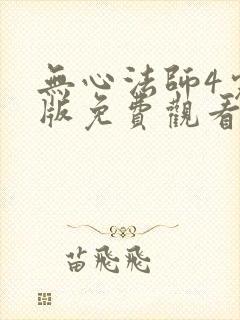 無心法師4
版免費觀看
苗飛飛